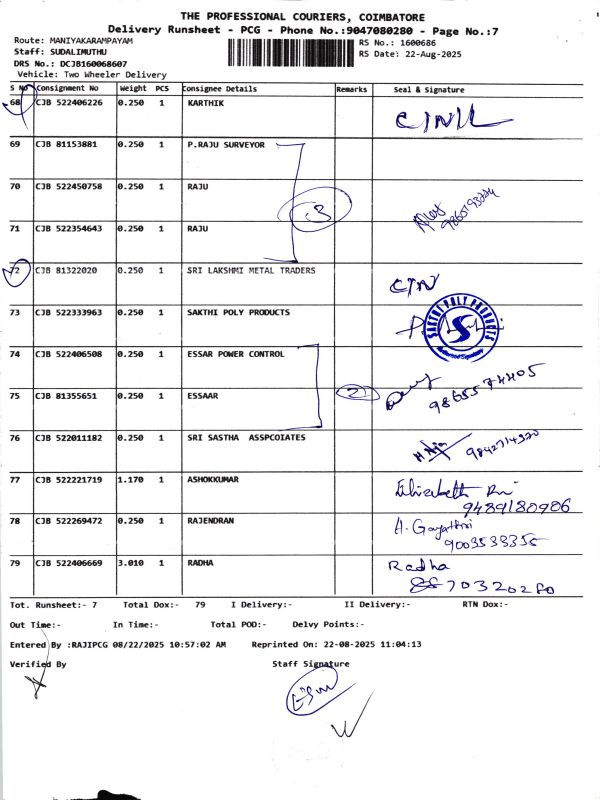 THE PROFESSIONAL COURIERS, COIMBATORE
Delivery Runsheet - PCG - Phone No.:9047080280 - Page No.:7
Route: MANIYAKARAMPAYAM
RS No.: 1600686
Staff: SUDALIMUTHU
RS Date: 22-Aug-2025
DRS No.: DCJB160068607
Vehicle: Two Wheeler Delivery
S No Consignment No Weight PCS Consignee Details Remarks Seal & Signature
68 CJB 522406226 0.250 1 KARTHIK
69 CJB 81153881 0.250 1 P.RAJU SURVEYOR
70 CJB 522450758 0.250 1 RAJU
3
71 CJB 522354643 0.250 1 RAJU
72 CJB 81322020 0.250 1 SRI LAKSHMI METAL TRADERS
73 CJB 522333963 0.250 1 SAKTHI POLY PRODUCTS
SAKTHI POLY PRODUCTS
S
Authorised Signatory
74 CJB 522406508 0.250 1 ESSAR POWER CONTROL
75 CJB 81355651 0.250 1 ESSAAR 2 9865574405
76 CJB 522011182 0.250 1 SRI SASTHA ASSPCOIATES 9842714320
77 CJB 522221719 1.170 1 ASHOKKUMAR Elizabeth
9489180906
78 CJB 522269472 0.250 1 RAJENDRAN A. Gayathri
9003538356
79 CJB 522406669 3.010 1 RADHA Radha
Tot. Runsheet:- 7 Total Dox:- 79 I Delivery:- II Delivery:- RTN Dox:-
Out Time:- In Time:- Total POD:- Delvy Points:-
Entered By :RAJIPCG 08/22/2025 10:57:02 AM Reprinted On: 22-08-2025 11:04:13
Verified By Staff Signature